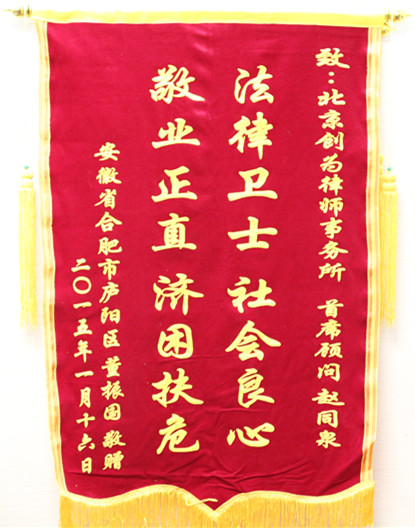 致：北京创为律师事务所 首席顾问 赵同泉
法律卫士 社会良心
敬业正直 济困扶危
安徽省合肥市庐阳区董振国敬赠
二〇一五年一月十六日